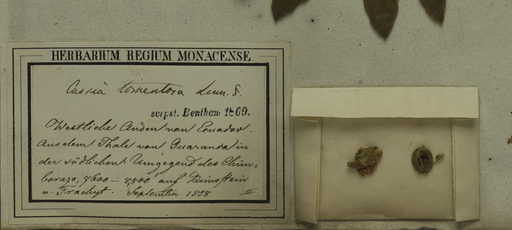 HERBARIUM REGIUM MONACENSE
Cassia tomentosa Linn. f.
scrpst. Bentham 1869.
Westliche Anden von Ecuador.
Aus dem Thale von Guaranda in
der südlichen Umgegend des Chim-
borazo, 7600 — 8800 auf Bimsstein
u. Trachyt. September 1858